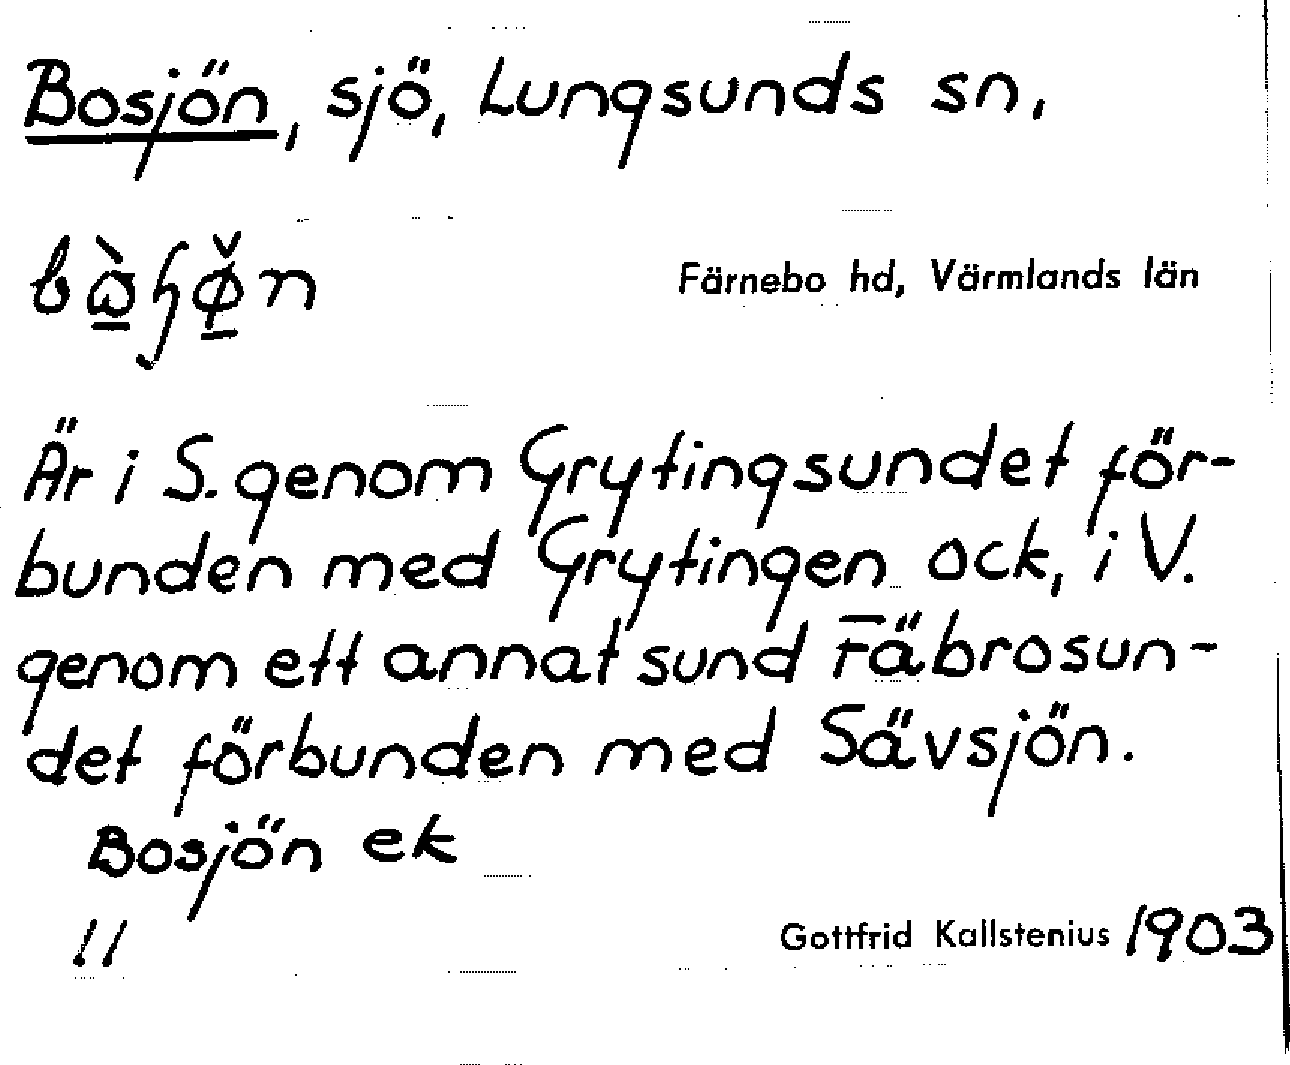 Bosjön, sjö, Lungsunds sn,
Färnebo hd, Värmlands län
Är i S. genom Grytingsundet för-
bunden med Grytingen ock, i V.
genom ett annat sund Fäbrosun-
det förbunden med Sävsjön.
Bosjön ek
!/
Gottfrid Kallstenius 1903